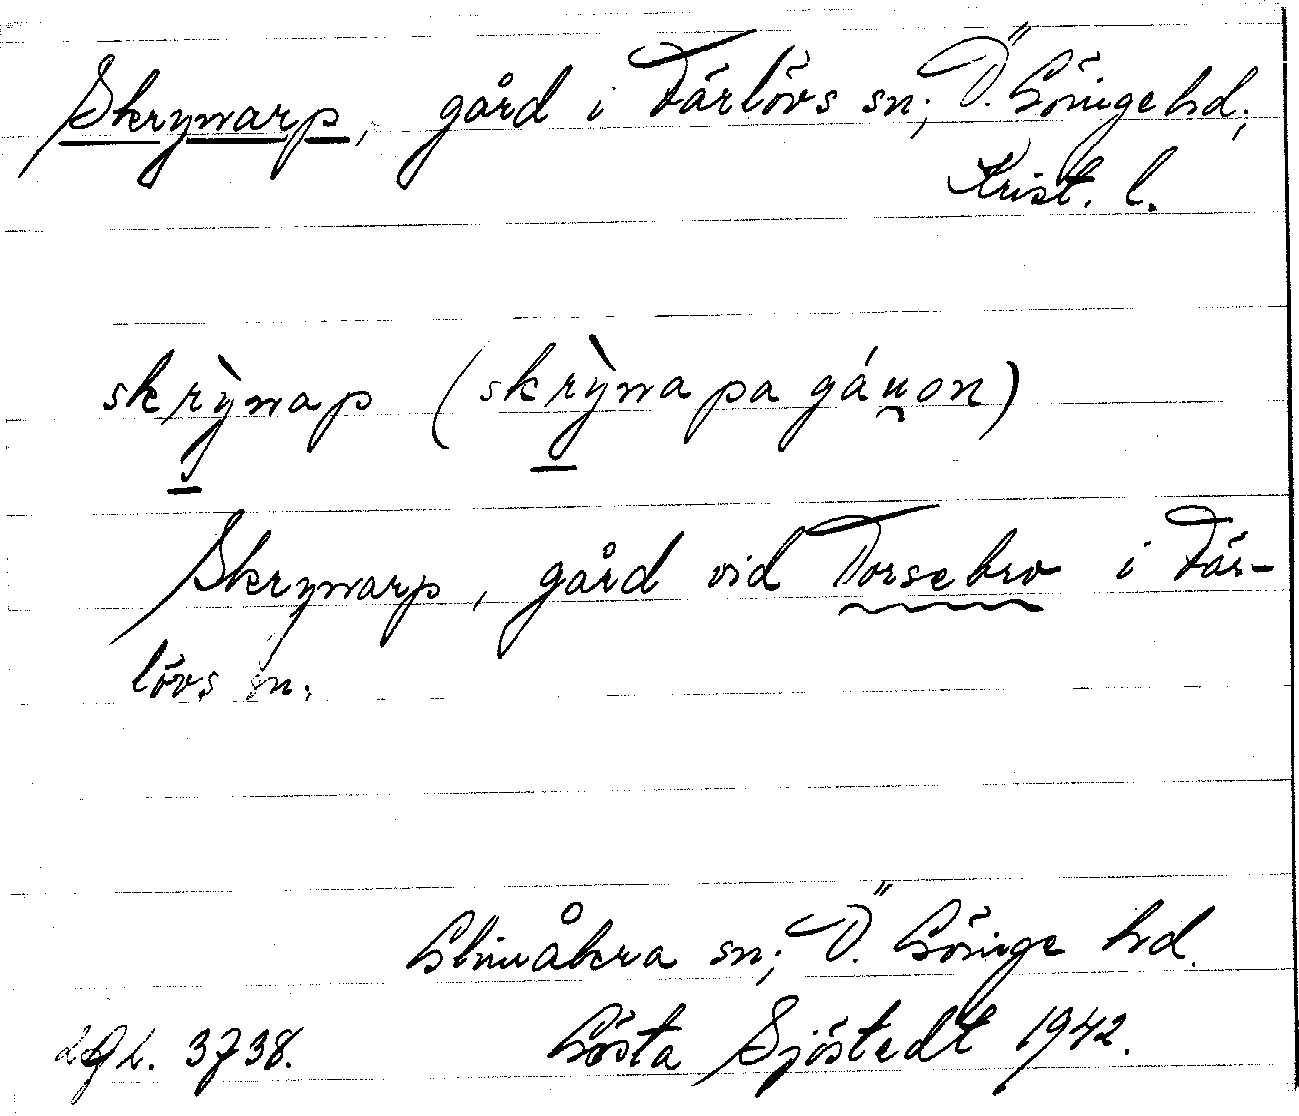 Skrynarp, gård i Färlövs sn; Ö. Göinge hd;
Krist. l.
skrỳnap (skrỳnapa gáu̯on)
Skrynarp, gård vid Torsebro i Fär-
lövs sn.
Glimåkra sn; Ö. Göinge hd.
3738. Gösta Sjöstedt 1942.